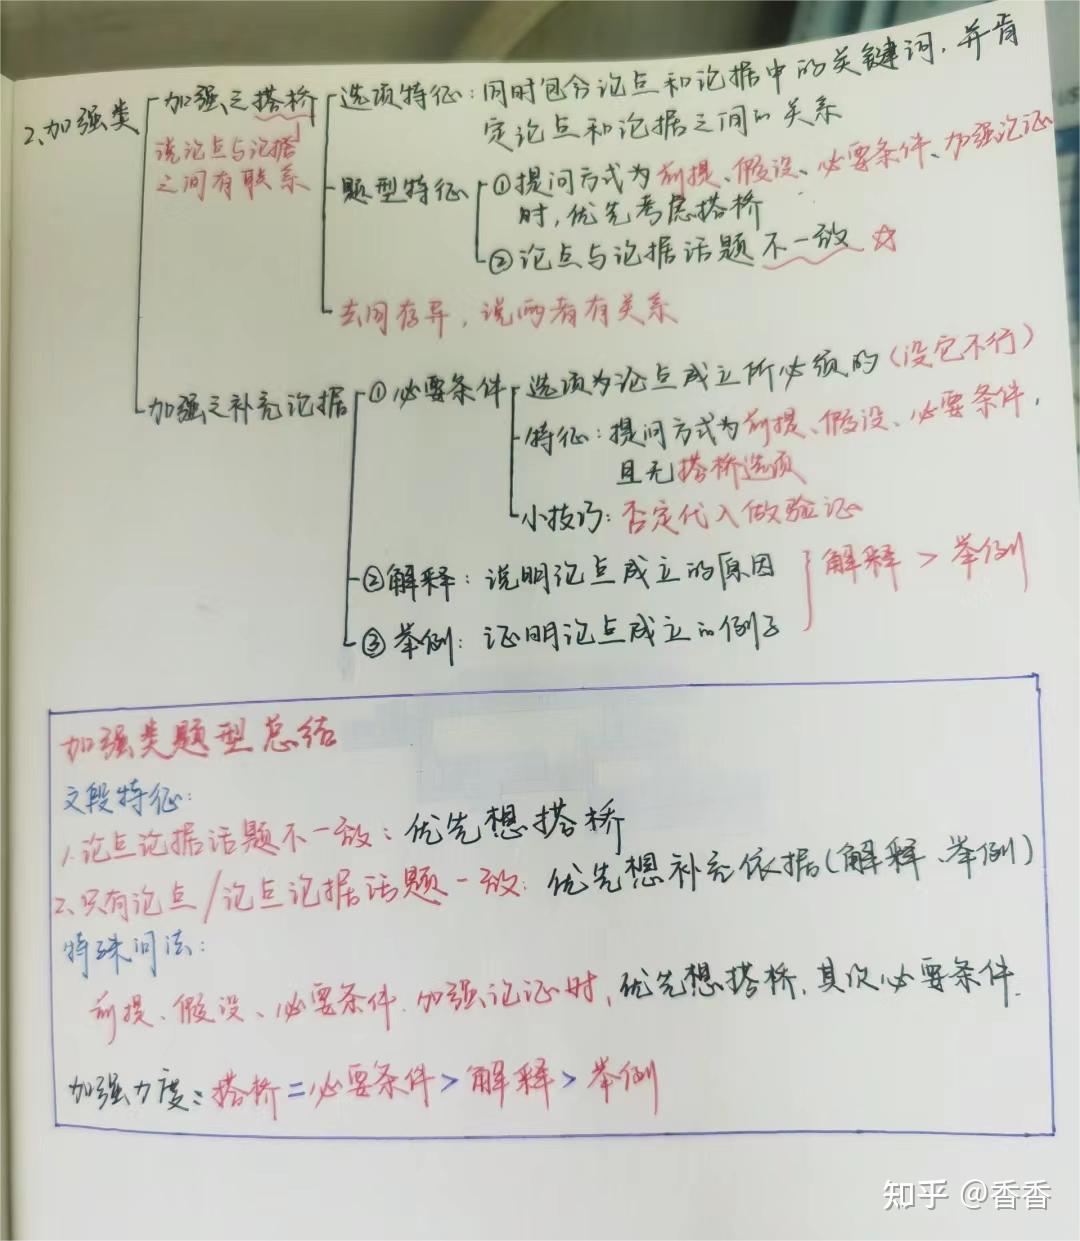 2、加强类
加强之搭桥
说论点与论据
之间有联系
选项特征：同时包含论点和论据中的关键词，并肯
定论点和论据之间的关系
题型特征
①提问方式为前提、假设、必要条件、加强论证
时，优先考虑搭桥
②论点与论据话题不一致☆
去同存异，说两者有关系
加强之补充论据
①必要条件
选项为论点成立所必须的（没它不行）
特征：提问方式为前提、假设、必要条件，
且无搭桥选项
小技巧：否定代入做验证
②解释：说明论点成立的原因
③举例：证明论点成立的例子
解释 > 举例
加强类题型总结
文段特征：
1.论点论据话题不一致：优先想搭桥
2.只有论点/论点论据话题一致：优先想补充依据（解释、举例）
特殊问法：
前提、假设、必要条件.加强论证时，优先想搭桥，其次必要条件.
加强力度：搭桥=必要条件>解释>举例
知乎 @香香